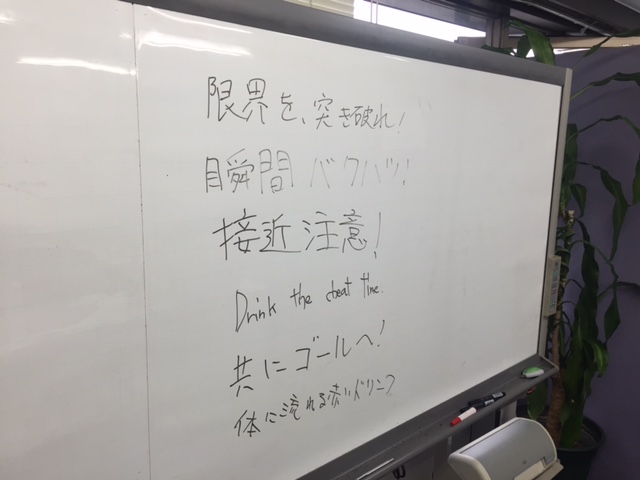 限界を、突き破れ!
瞬間バクバツ!
接近注意!
Drink the cheat time.
共にゴールへ!
体に流れる赤いドリンク